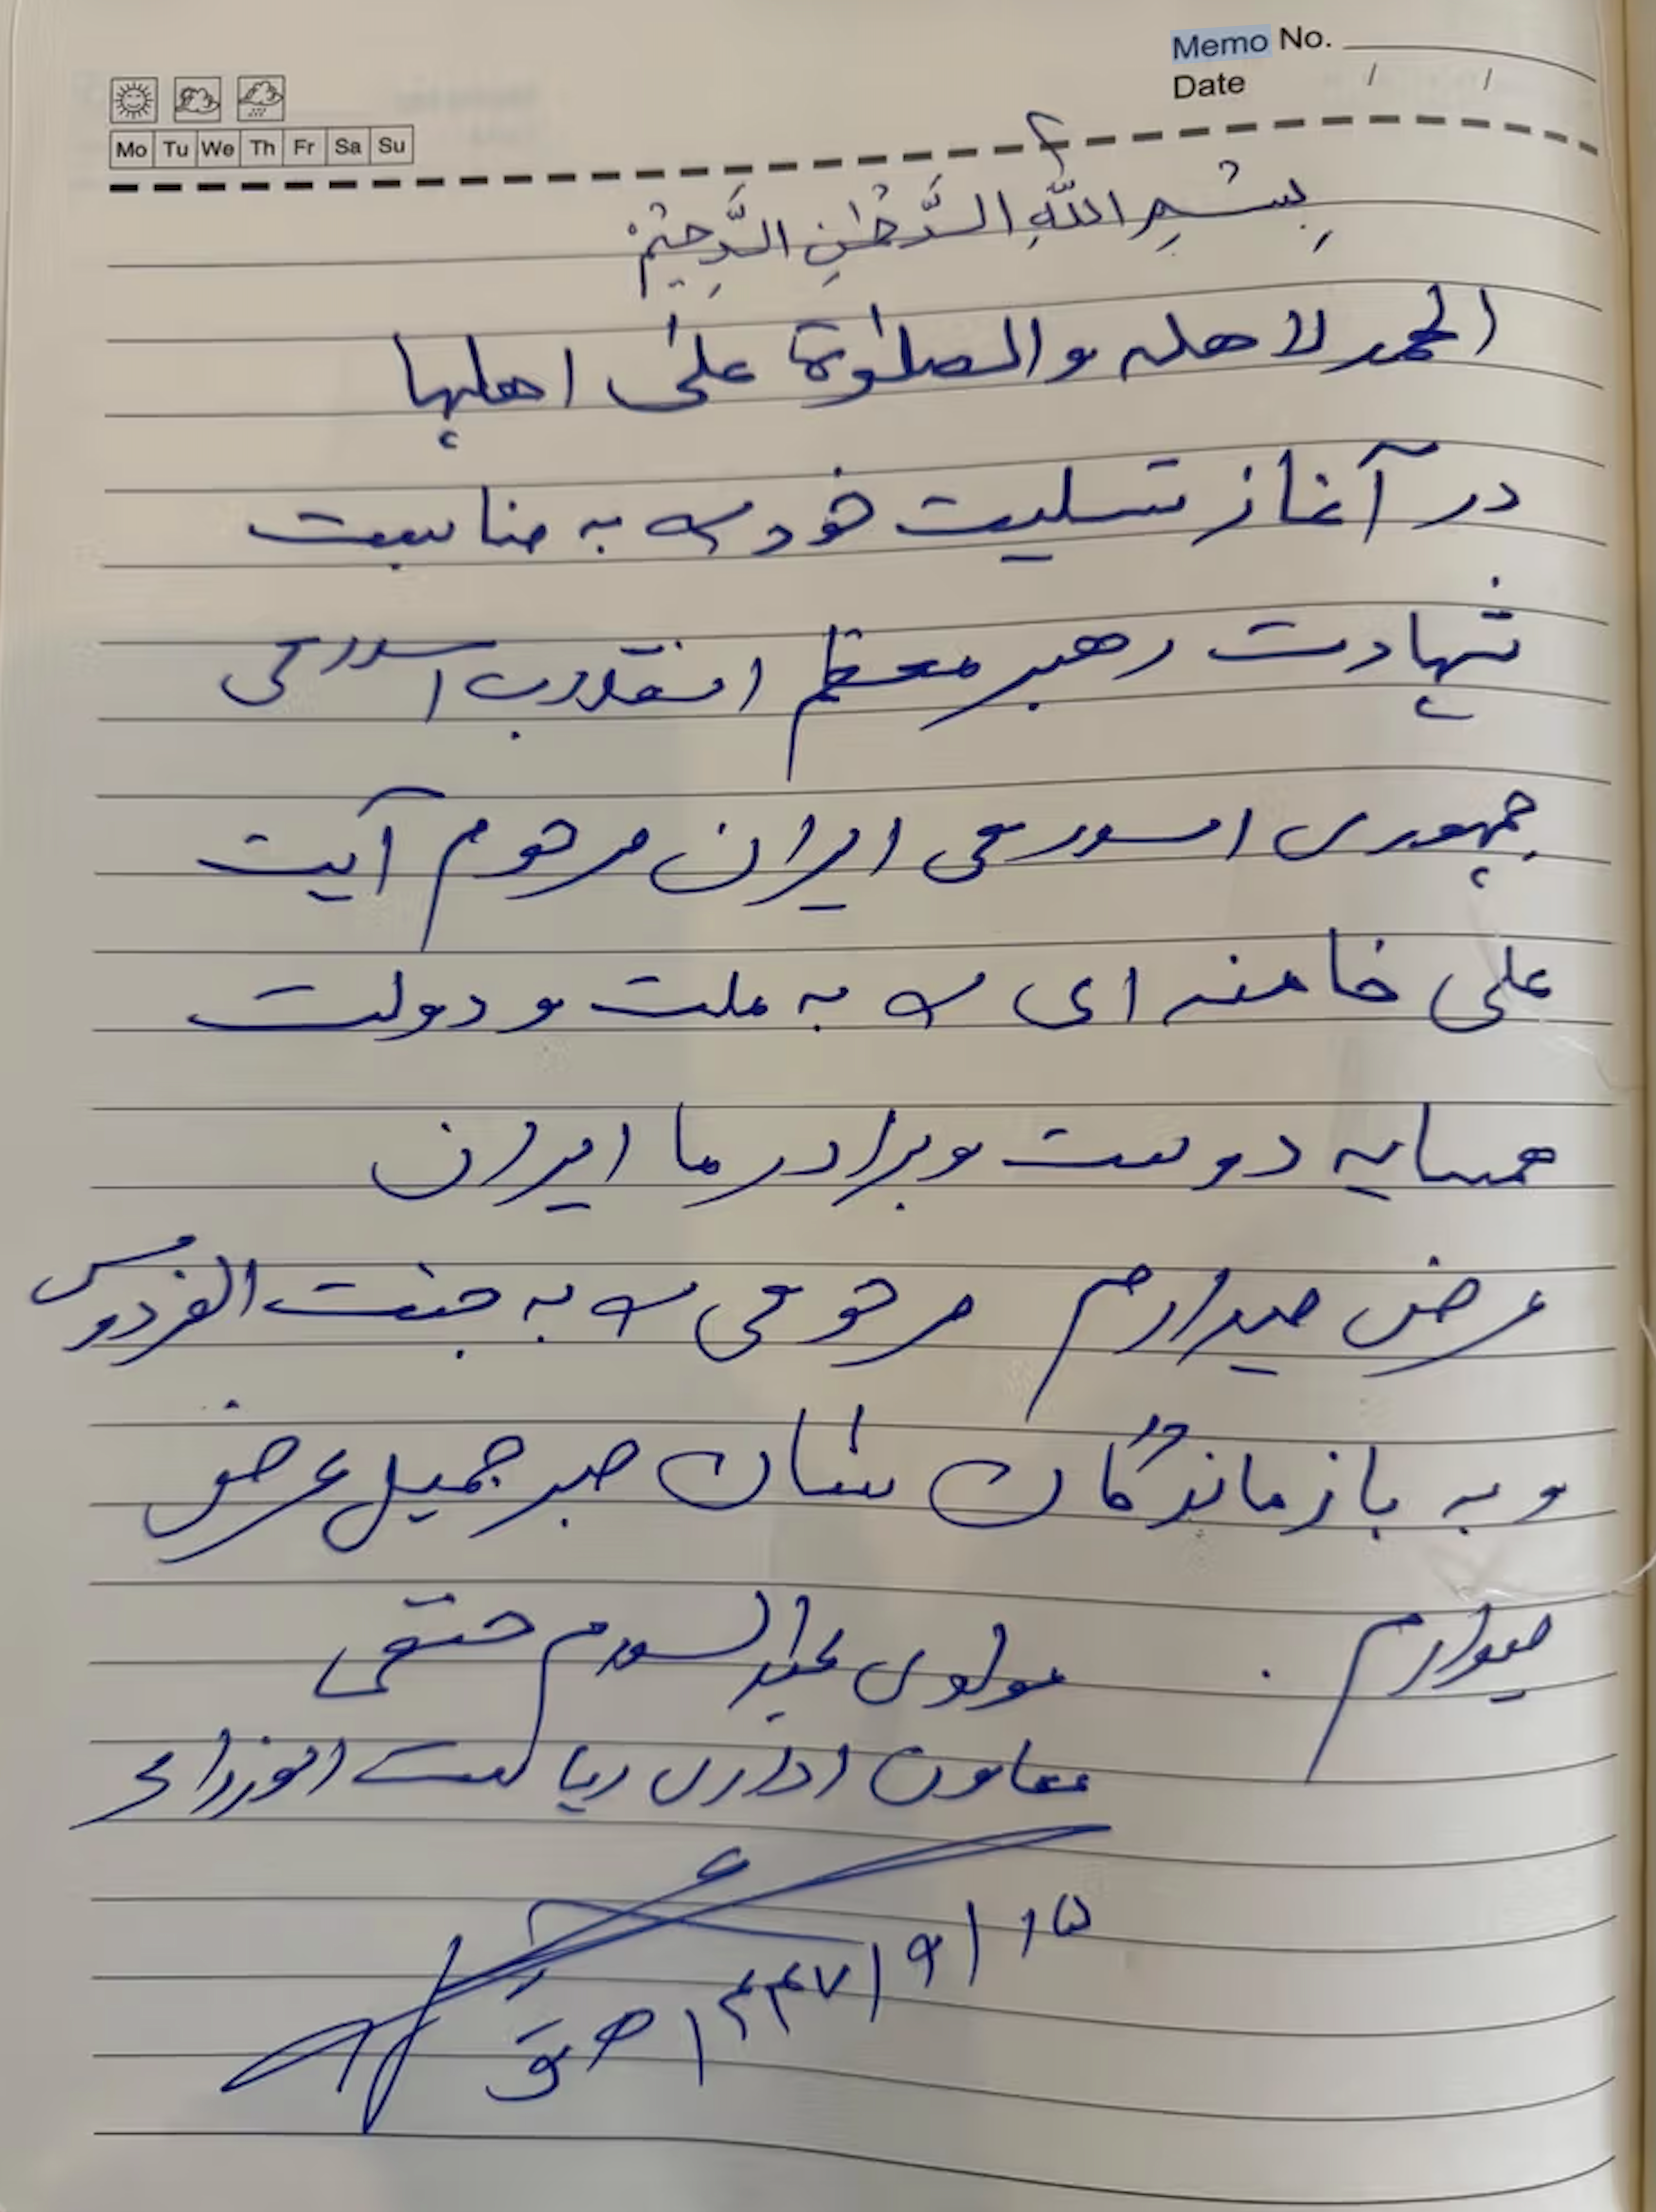 Memo No.
Date / /
Mo Tu We Th Fr Sa Su
بِسْمِ اللّهِ الرَّحْمٰنِ الرَّحِيْمِ
الحمد لاهله والصلوٰة علیٰ اهلها
در آغاز تسلیت خود را به مناسبت
شهادت رهبر معظم انقلاب اسلامی
جمهوری اسلامی ایران مرحوم آیت
علی خامنه ای را به ملت و دولت
همسایه دوست و برادر ما ایران
عرض میدارم مرحومی را به جنت الفردوس
و به بازماندگان شان صبر جمیل عرض
میدارم .
مولوی عبدالسلام حنفی
معاون اداری ریاست الوزراء
۱۴۴۷/۹/۱۵ هـ ق